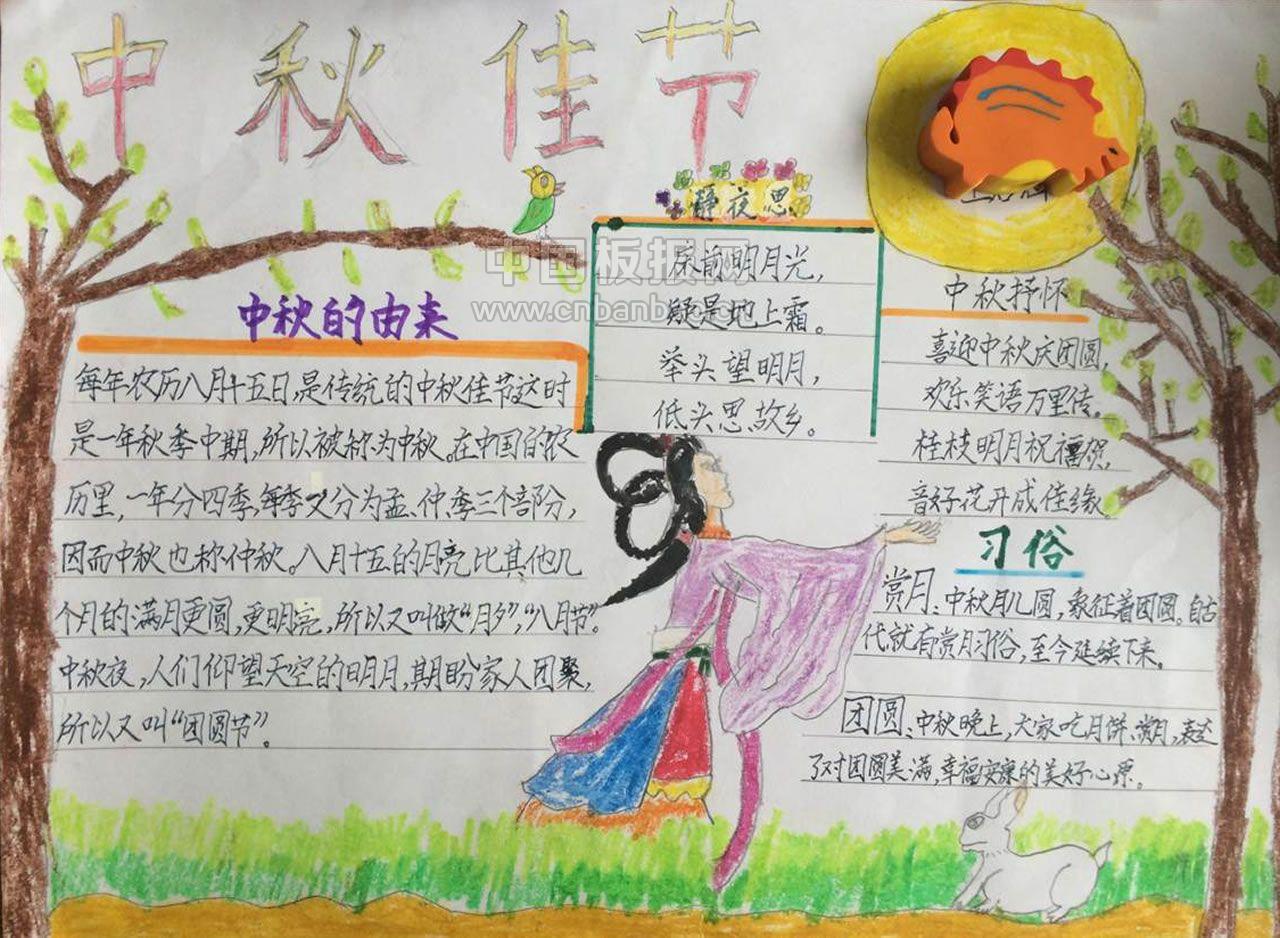 中秋佳节
中秋的由来
每年农历八月十五日,是传统的中秋佳节这时
是一年秋季中期,所以被称为中秋。在中国的农
历里,一年分四季,每季又分为孟、仲、季三个部分,
因而中秋也称仲秋。八月十五的月亮比其他几
个月的满月更圆,更明亮,所以又叫做“月夕”,“八月节”。
中秋夜,人们仰望天空的明月,期盼家人团聚,
所以又叫“团圆节”。
静夜思
床前明月光,
疑是地上霜。
举头望明月,
低头思故乡。
中秋抒怀
喜迎中秋庆团圆,
欢乐笑语万里传。
桂枝明月祝福贺,
音好花开成佳缘
习俗
赏月:中秋月儿圆,象征着团圆。自古
代就有赏月习俗,至今延续下来。
团圆:中秋晚上,大家吃月饼、赏月,表达
了对团圆美满,幸福安康的美好心愿。
中国板报网